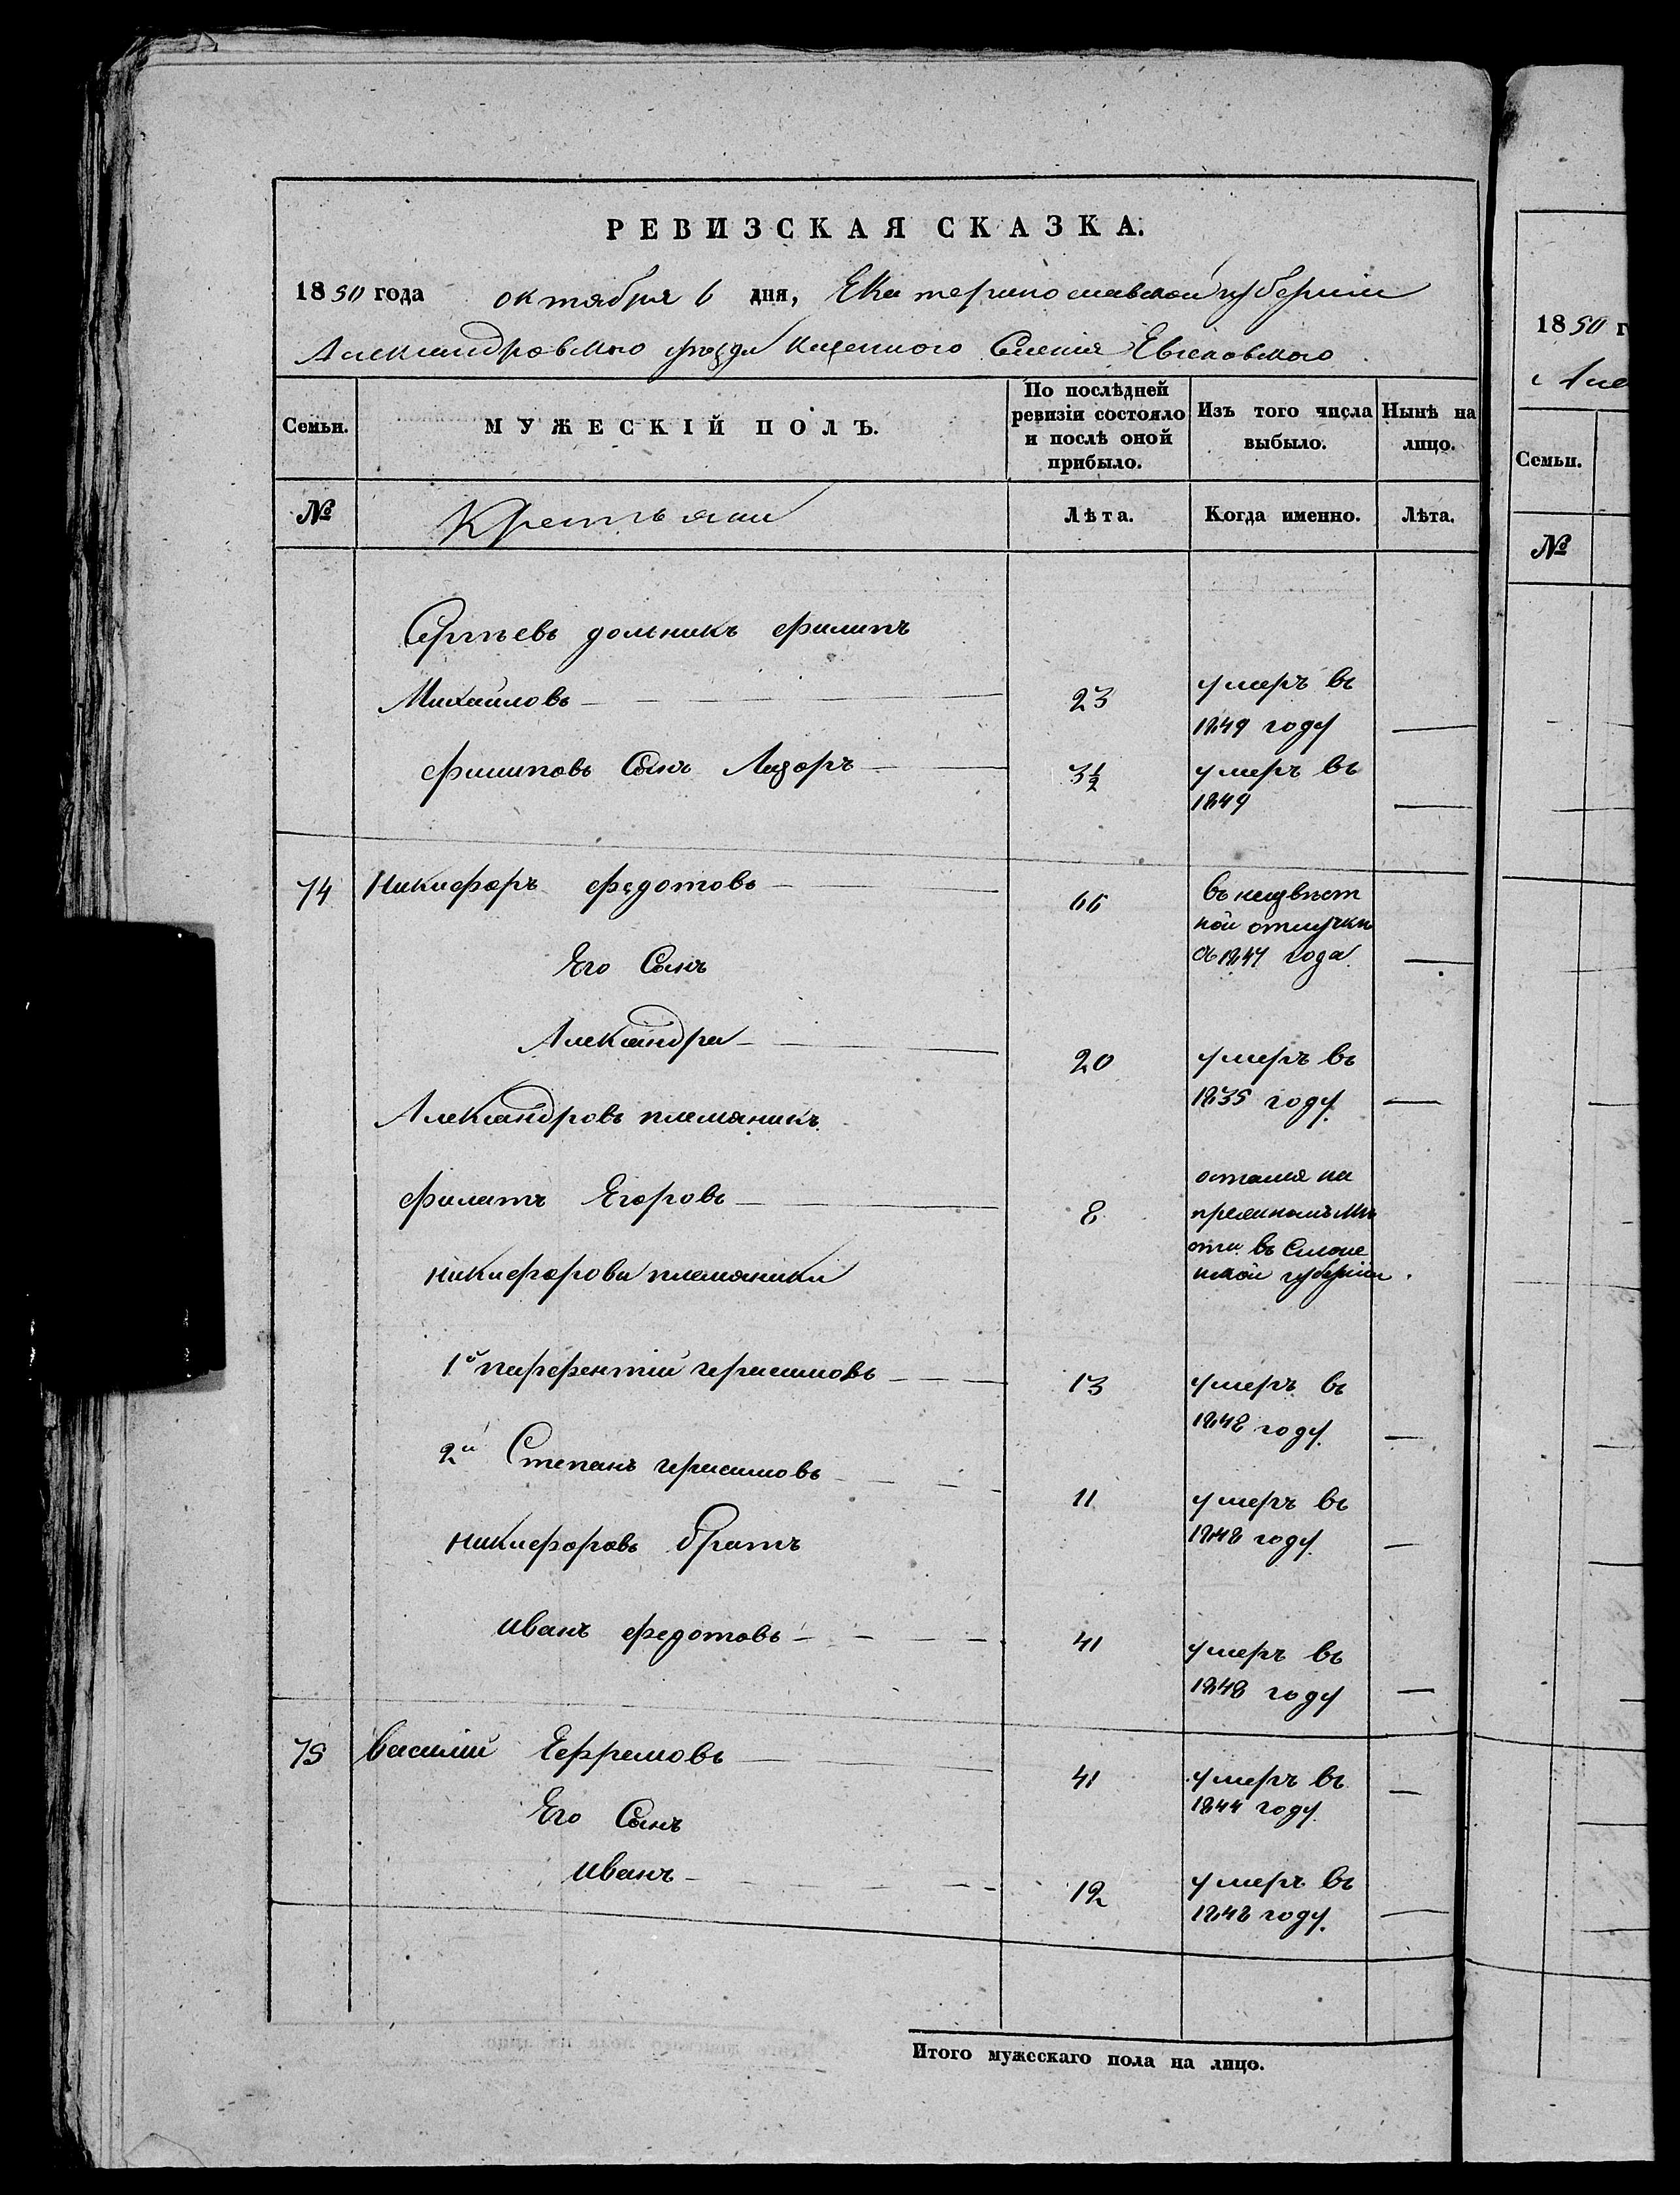 РЕВИЗСКАЯ СКАЗКА.
1850 года октября 6 дня, Екатеринославской губернии
Александровского уезда казенного Селения Евсковского
Семьи.
МУЖЕСКІЙ ПОЛЪ.
По послѣдней ревизіи состояло и послѣ оной прибыло.
Изъ того числа выбыло.
Нынѣ на лицо.
№ Крестьяни Лѣта. Когда именно. Лѣта.
Сергѣевъ дольникъ филипъ
Михайловъ 23 умеръ въ
1849 году
филиповъ Сынъ Лазоръ 3½ умеръ въ
1849
74 Никифоръ федотовъ 66 въ неизвѣст
ной отлучки
съ 1847 года
Его Сынъ
Александра 20 умеръ въ
1835 году
Александровъ племяникъ
филатъ Егоровъ 8 остался на
прежнемъ мѣ
сте въ Смоле
нской губерніи.
никифорови племяники
1й парфентій герасимовъ 13 умеръ въ
1848 году
2й Степанъ герасимовъ 11 умеръ въ
1848 году
никифоровъ братъ
иванъ федотовъ 41 умеръ въ
1848 году
75 василий Ефремовъ 41 умеръ въ
1844 году
Его Сынъ
иванъ 12 умеръ въ
1848 году
Итого мужескаго пола на лицо.
1850 г
Але
Семьи.
№